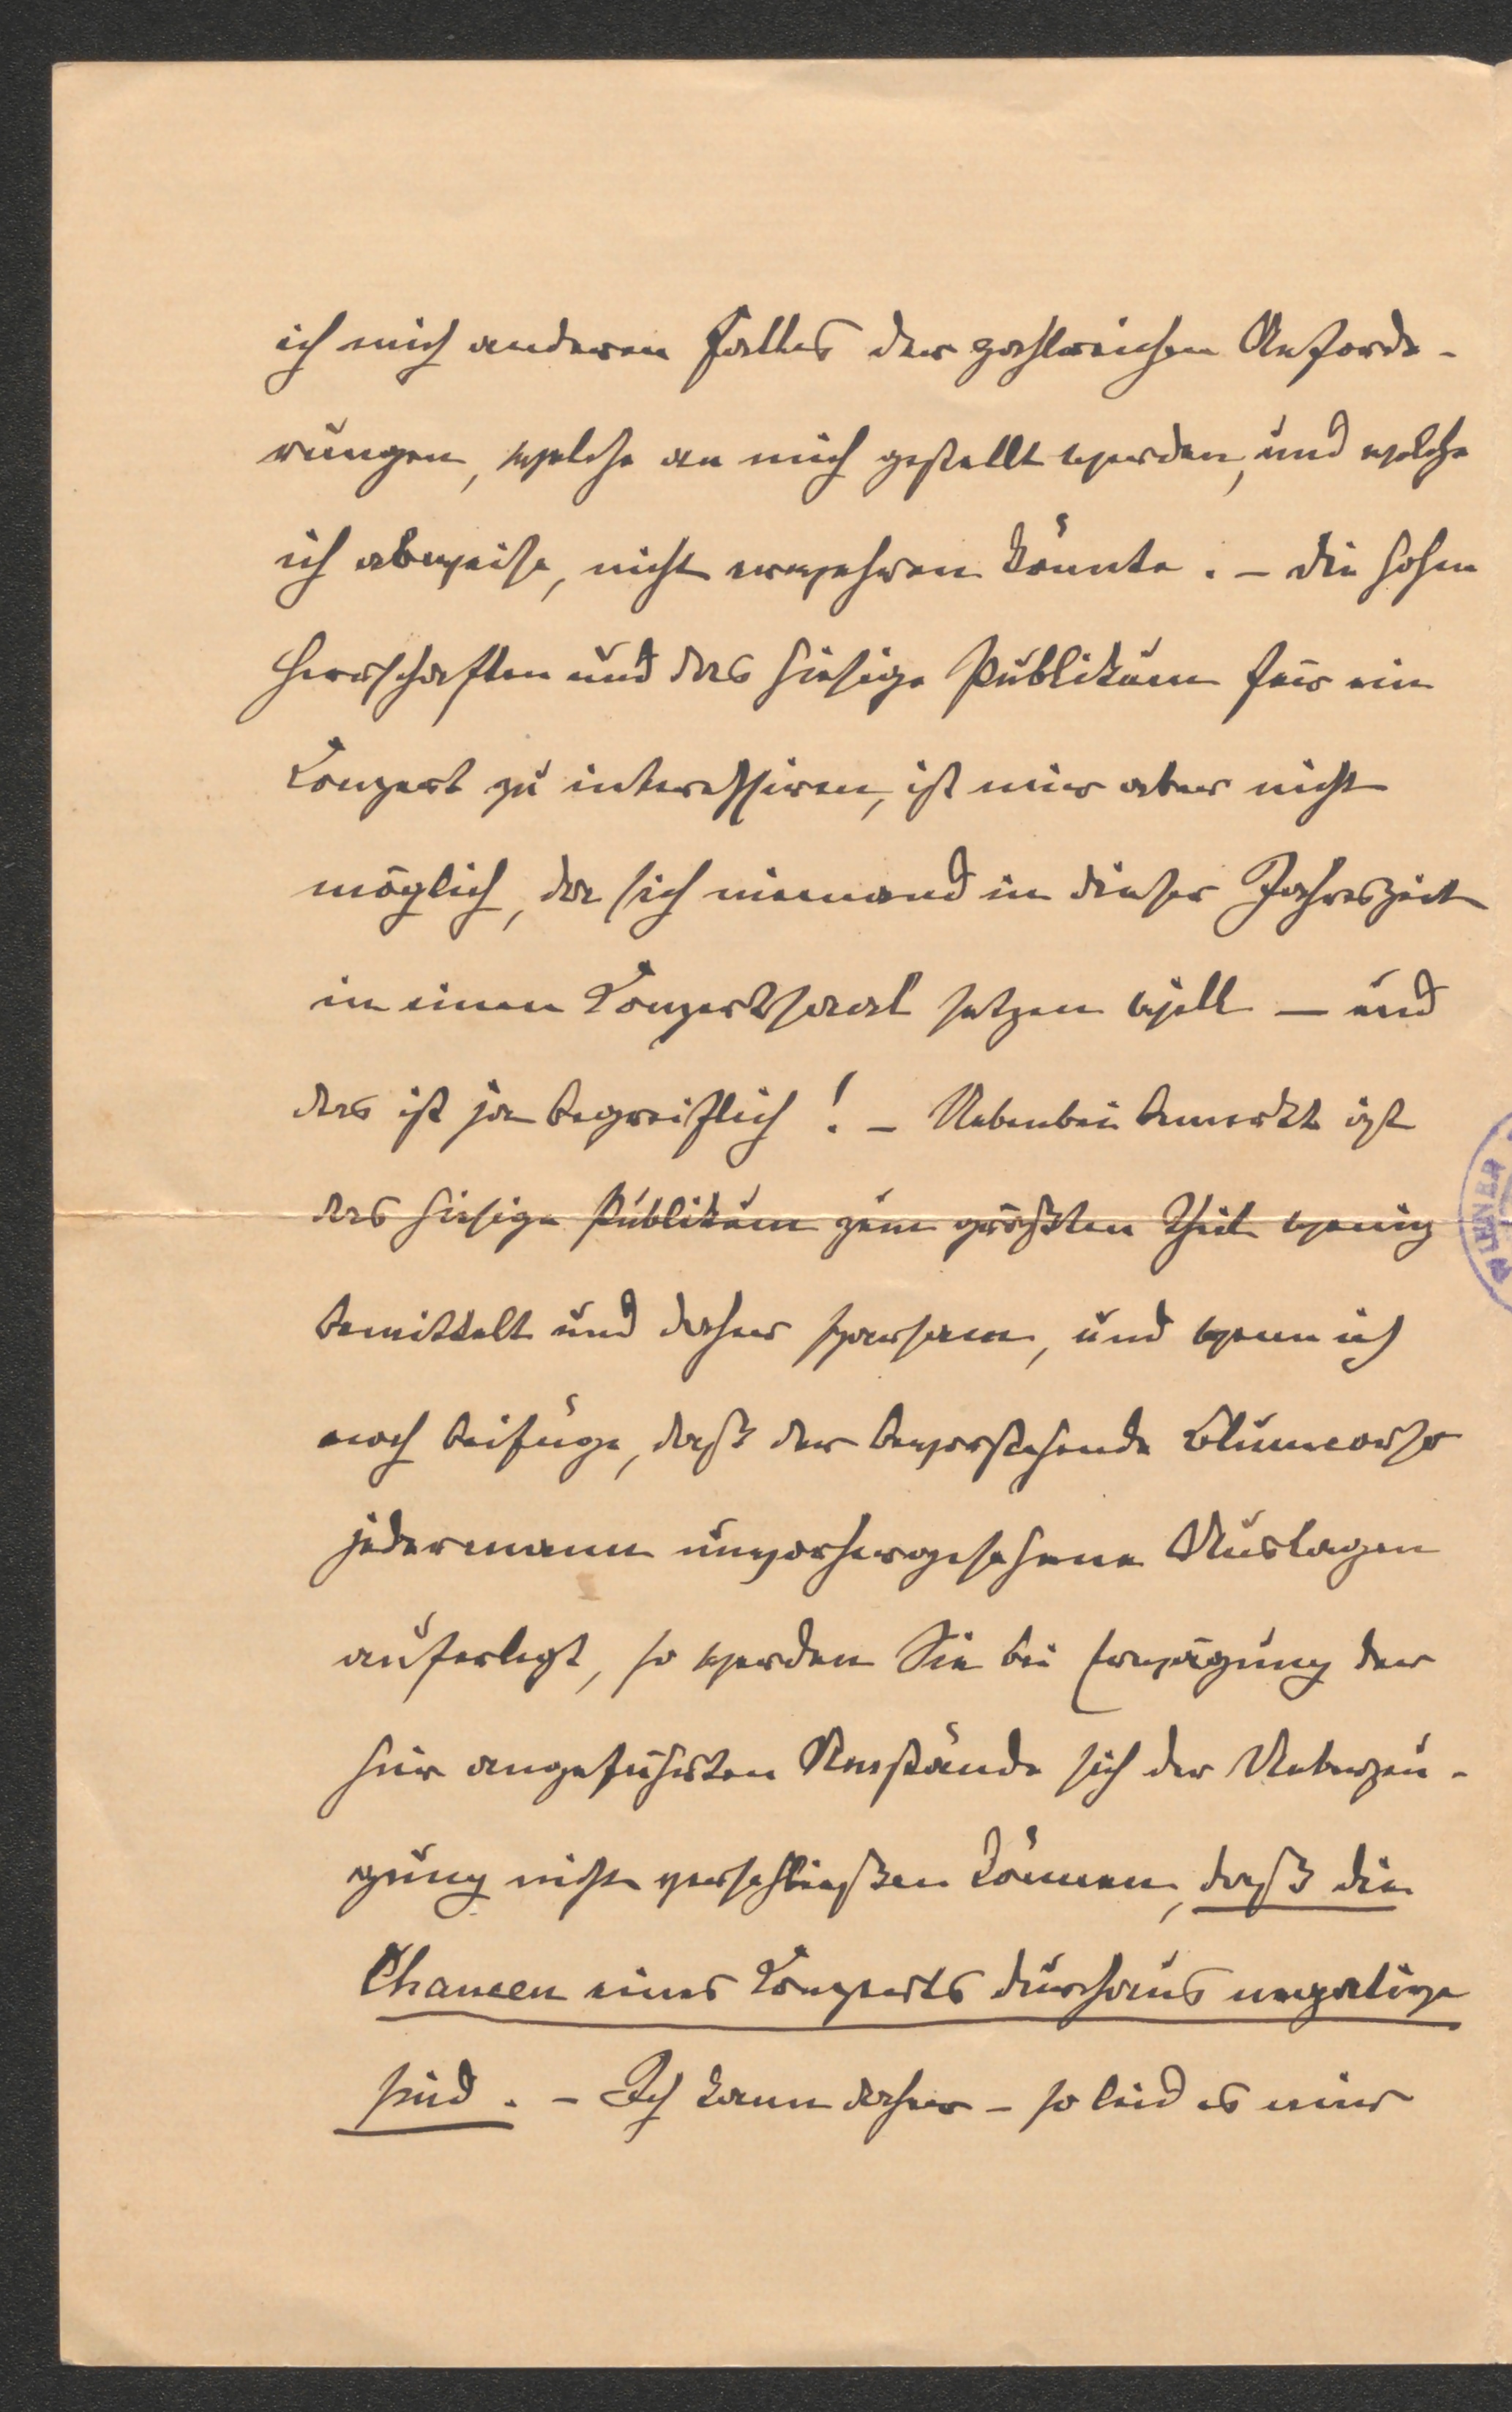 ich mich anderen Falles der zahlreichen Anforde-
rungen, welche an mich gestellt werden, und welche
ich abweise, nicht erwehren könnte. – Die hohen
Herrschaften und das hiesige Publikum für ein
Konzert zu interessiren, ist mir aber nicht
möglich, da sich niemand in dieser Jahreszeit
in einen Konzertsaal setzen will – und
das ist ja begreiflich! – Nebenbei bemerkt ist
das hiesige Publikum zum größten Theil wenig
bemittelt und daher sparsam, und wenn ich
noch beifüge, daß der bevorstehende Blumcorso
jedermann unvorhergesehene Auslagen
auferlegt, so werden Sie bei Erwägung der
hier angeführten Umstände sich der Ueberzeu-
gung nicht verschließen können, daß die
Chancen eines Konzerts durchaus negative
sind. – Ich kann daher – so leid es mir
WIENER